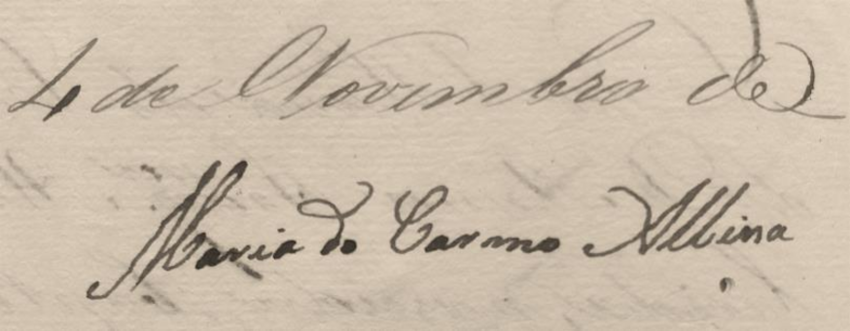 4 de Novembro de
Maria do Carmo Albina